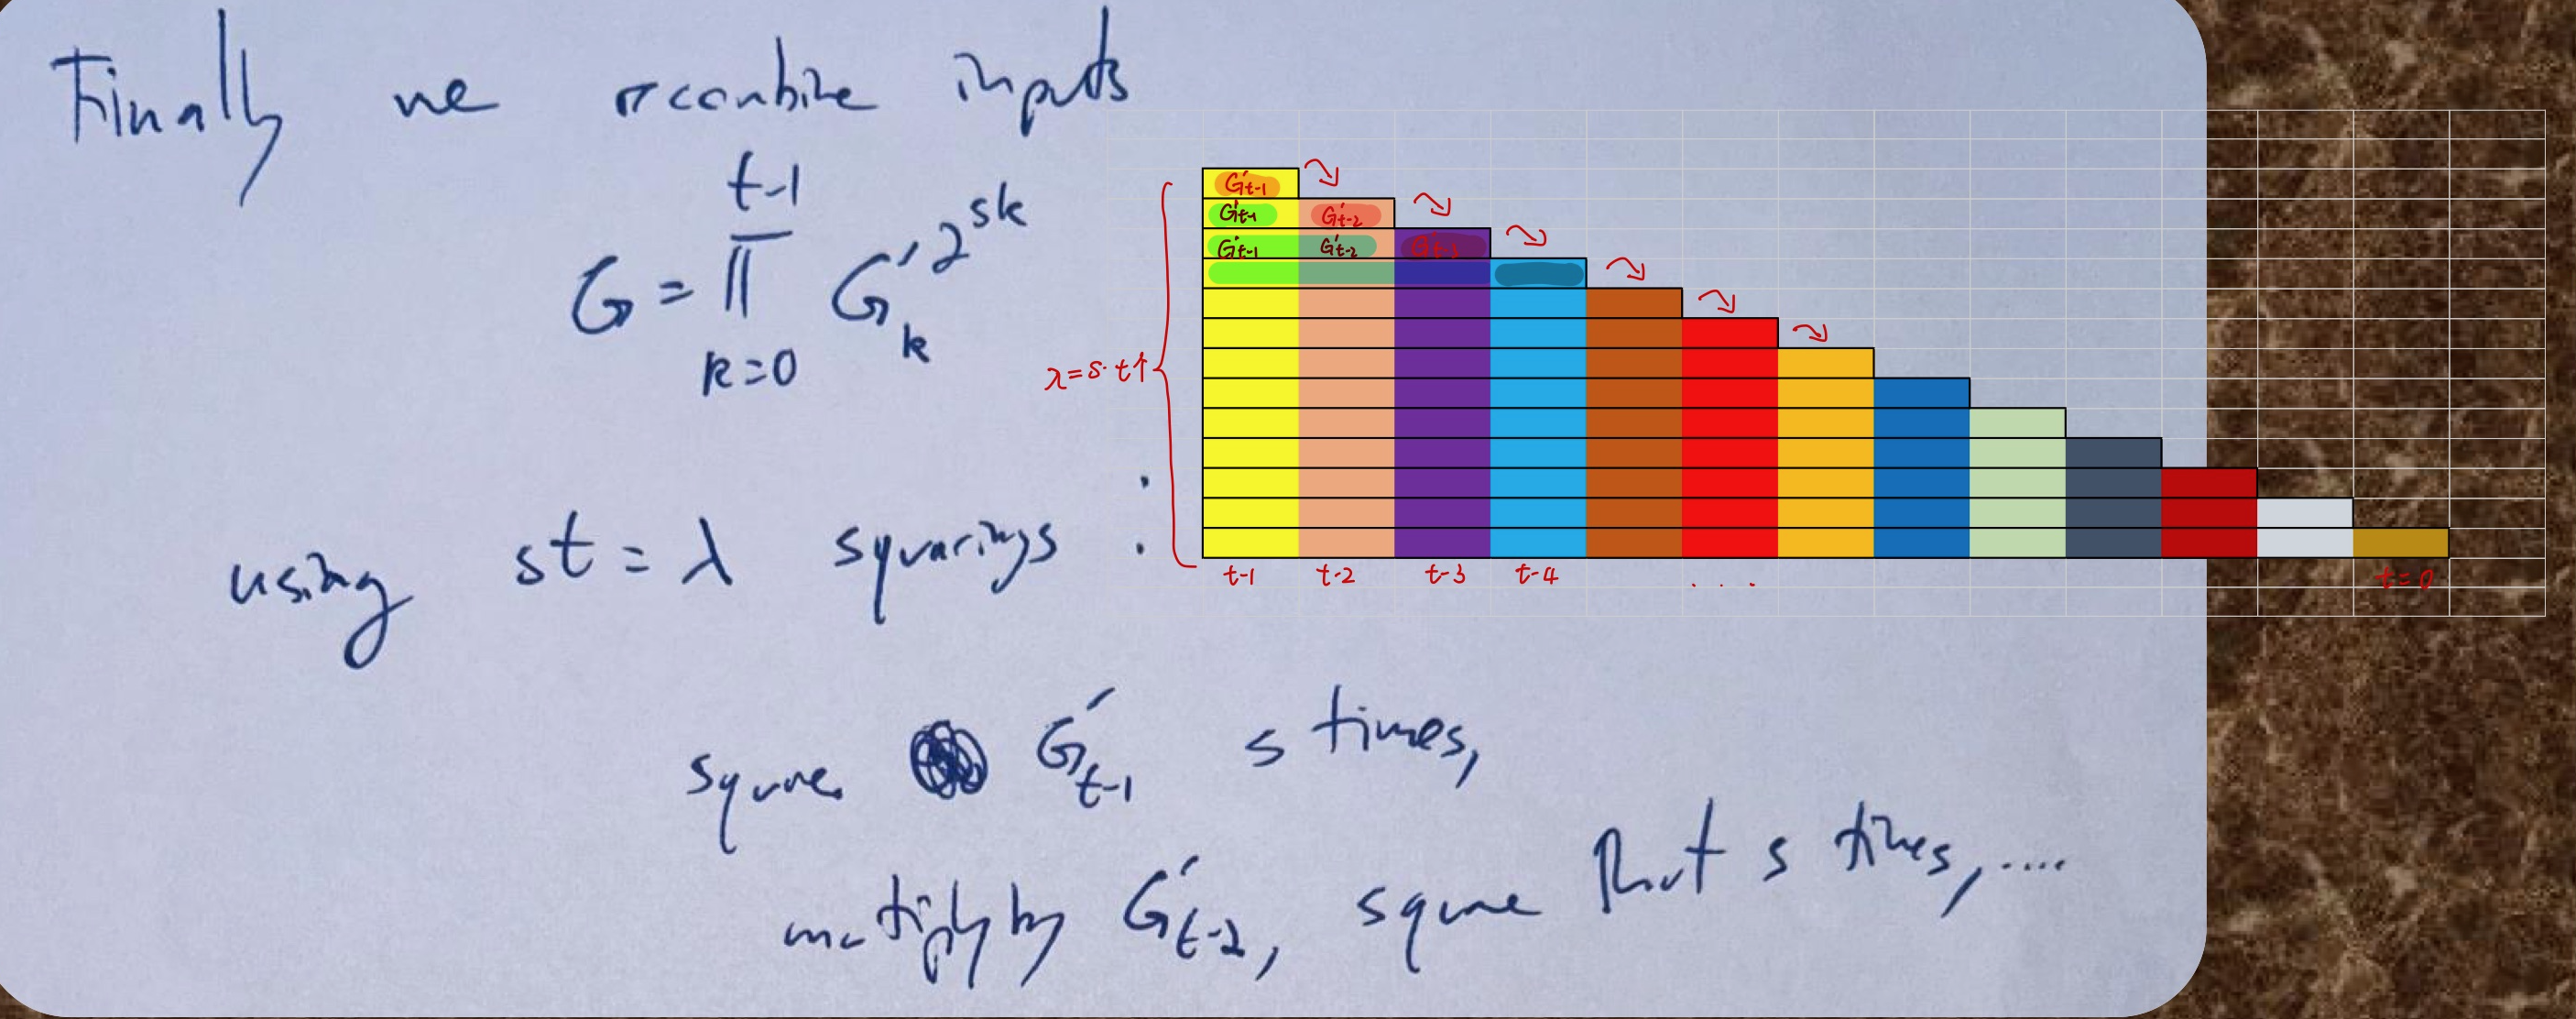 Finally we recombine inputs
t-1
G = ∏ G'_k^{2^{sk}}
k=0
using st = λ squarings :
square G'_{t-1} s times,
multiply by G'_{t-2}, square that s times, ....
G'_{t-1}
G'_{t-1} G'_{t-2}
G'_{t-1} G'_{t-2} G'_{t-3}
λ=s·t↑
t-1 t-2 t-3 t-4 . . . t=0